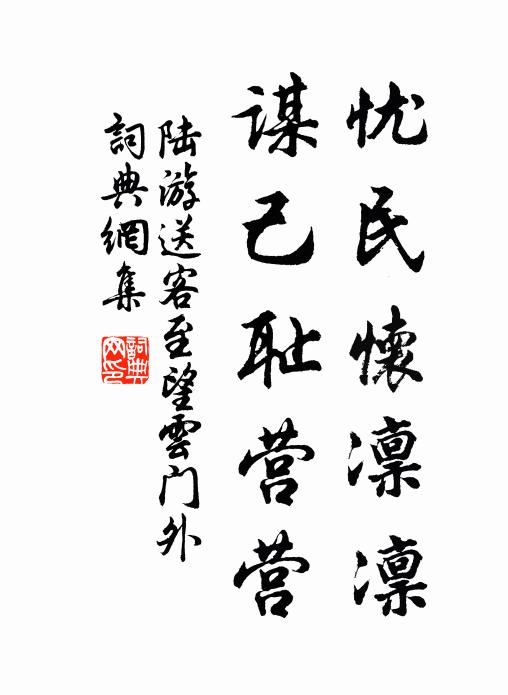 忧民懷凛凛
谋己耻营营
陆游送客至望雲门外
詞典網集
詞典网印